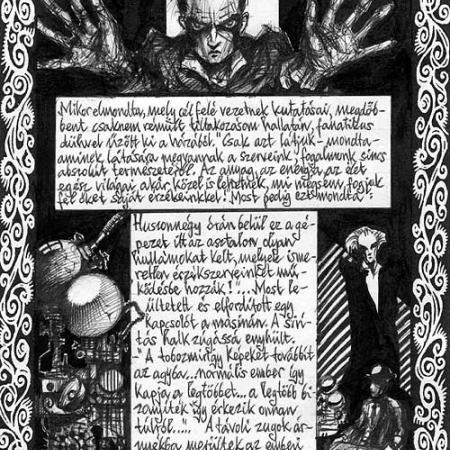 Mikor elmondta, mely cél felé vezetnek kutatásai, megdöb-
bent csaknem rémült tiltakozásom hallatán, fanatikus
dühvel űzött ki a házából. "Csak azt látjuk - mondta -
aminek látására megvannak a szerveink, fogalmunk sincs
abszolút természetéről. Az anyag, az energia, az élet
egész világai akár közel is lehetnek, mi mégsem fogjuk
fel őket saját érzékeinkkel! Most pedig ezt mondta:
Huszonnégy órán belül ez a gé-
pezet itt az asztalon olyan
hullámokat kelt, melyek isme-
retlen érzékszerveinket mű-
ködésbe hozzák!"... Most le-
ültetett és elfordított egy
kapcsolót a masinán. A siví-
tás halk zúgássá enyhült.
"A tobozmirigy képeket továbbít
az agyba... normális ember így
kapja a legtöbbet... a legtöbb bi-
zonyíték így érkezik onnan
túlról...." A távoli zugok ár-
nyékba merültek az emberi